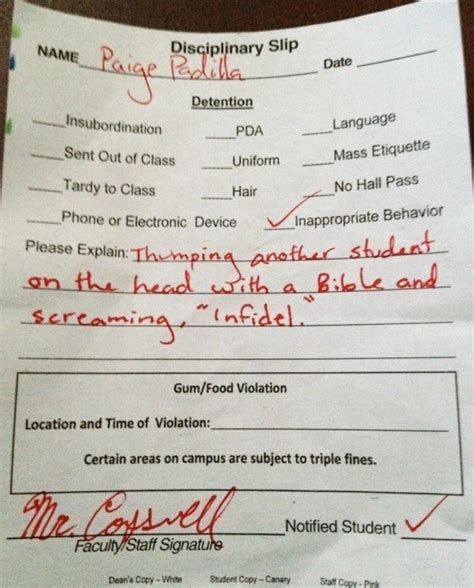 Disciplinary Slip
NAME Paige Padilla Date
Detention
Insubordination PDA Language
Sent Out of Class Uniform Mass Etiquette
Tardy to Class Hair No Hall Pass
Phone or Electronic Device ✓ Inappropriate Behavior
Please Explain: Thumping another student
on the head with a Bible and
screaming, "Infidel."
Gum/Food Violation
Location and Time of Violation:
Certain areas on campus are subject to triple fines.
Mr. Coffswell Notified Student ✓
Faculty/Staff Signature
Dean's Copy – White Student Copy – Canary Staff Copy - Pink